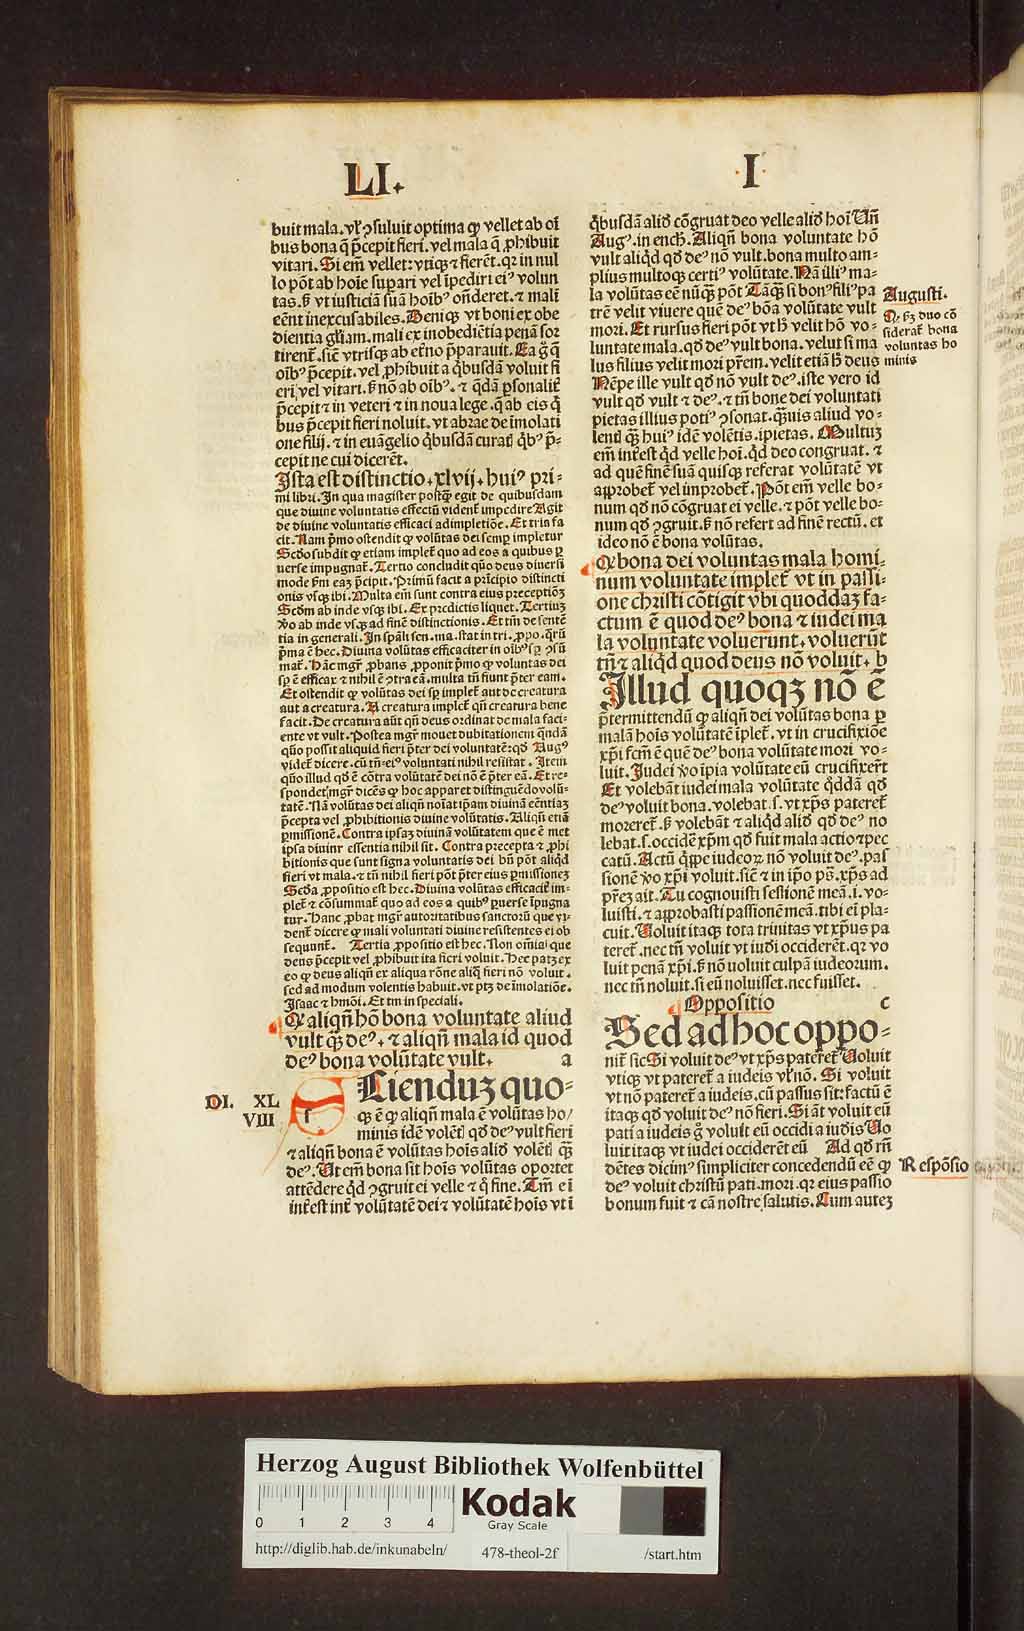 LI.
I
buit mala. vl' ꝯsuluit optima ꝙ vellet ab oī
bus bona q̄ p̄cepit fieri. vel mala q̄ ꝓhibuit
vitari. Si em̄ vellet: vtiqꝫ ⁊ fieret. qꝛ in nul
lo pōt ab hoīe suꝑari vel īpediri ei⁹ volun
tas. sꝫ vt iusticiā suā hoīb⁹ oñderet. ⁊ mali
eēnt inexcusabiles. Deniqꝫ vt boni ex obe
dientia gl̄iam. mali ex inobediētia penā sor
tirent̄. sic̄ vtrisqꝫ ab et̄no p̄parauit. Ea g̊ q̄
oīb⁹ p̄cepit. vel ꝓhibuit a q̇busdā voluit fi
eri vel vitari. sꝫ nō ab oīb⁹. ⁊ q̄dā ꝑsonalit̄
p̄cepit ⁊ in veteri ⁊ in noua lege. q̄ ab eis q̇
bus p̄cepit fieri noluit. vt abrae de īmolati
one filij. ⁊ in euāgelio q̇busdā curatꝭ q̇b⁹ p̄-
cepit ne cui dicerēt.
Ista est distinctio. xlvij. hui⁹ pri-
mi libri. In qua magister postꝙ̄ egit de quibusdam
que diuine voluntatis effectū vident̄ impedire Agit
de diuine voluntatis efficaci adimpletiōe. Et tria fa
cit. Nam p̄mo ostendit ꝙ volūtas dei semꝑ impletur
Scd̄o subdit ꝙ etiam implet̄ quo ad eos a quibus ꝑ
uerse impugnat̄. Tertio concludit quo deus diuersi
mode sm̄ eaꝫ p̄cipit. Primū facit a pr̄icipio distincti
onis vsqꝫ ibi. Multa em̄ sunt contra eius preceptiōeꝫ
Scd̄m ab inde vsqꝫ ibi. Ex predictis liquet. Tertiuꝫ
v̊o ab inde vsqꝫ ad finē distinctionis. Et tm̄ de sentē
tia in generali. In sp̄ali sen. ma. stat in tri. ꝓpo. q̄rū
p̄ma ē hec. Diuina volūtas efficaciter in oīb⁹ sꝑ ꝯsū
mat̄. Hāc mgr̄ ꝓbans ꝓponit p̄mo ꝙ voluntas dei
sꝑ ē efficax ⁊ nihil ē ꝯtra eā. multa tn̄ fiunt p̄ter eam.
Et ostendit ꝙ volūtas dei sꝑ implet̄ aut de creatura
aut a creatura. A creatura implet̄ qn̄ creatura bene
facit. De creatura aūt qn̄ deus ordinat de mala faci-
ente vt vult. Postea mgr̄ mouet dubitationem q̄ndā
quō possit aliquid fieri p̄ter dei voluntatē: qd̄ Aug⁹
videt̄ dicere. cū tn̄ ei⁹ voluntati nihil resistat. Item
quō illud qd̄ ē cōtra volūtatē dei nō ē p̄ter eā. Et re-
spondet mgr̄ dicēs ꝙ hoc apparet distinguēdo volū-
tatē. Nā volūtas dei aliqn̄ noīat ip̄am diuinā eēntiaꝫ
p̄cepta vel ꝓhibitionis diuine volūtatis. Aliqn̄ etiā
ꝑmissionē. Contra ipsaꝫ diuinā volūtatem que ē met
ipsa diuina essentia nihil fit. Contra precepta ⁊ ꝓhi
bitionis que sunt signa voluntatis dei bn̄ pōt aliqd̄
fieri vt mala. ⁊ tn̄ nihil fieri pōt p̄ter eius ꝑmissioneꝫ
Scd̄a ꝓpositio est hec. Diuina volūtas efficacit̄ im-
plet̄ ⁊ cōsummat̄ quo ad eos a quib⁹ ꝑuerse īpugna
tur. Hanc ꝓbat mgr̄ autoritatibus sanctorū que vi-
dent̄ dicere ꝙ mali voluntati diuine resistentes ei ob
sequunt̄. Tertia ꝓpositio est hec. Non om̄ia que
deus p̄cepit vel ꝓhibuit ita fieri voluit. Hec patꝫ ex
eo ꝙ deus aliqn̄ ex aliqua rōne aliq̇ fieri nō voluit.
sed ad modum volentis habuit. vt ptꝫ de īmolatiōe.
Isaac ⁊ hmōi. Et tm̄ in speciali.
Qꝫ aliqn̄ hō bona voluntate aliud
vult q̄ꝫ de⁹. ⁊ aliqn̄ mala id quod
de⁹ bona volūtate vult. a
DI. XL
VIII
Scienduꝫ quo-
qꝫ ē ꝙ aliqn̄ mala ē volūtas ho/
minis idē volētꝭ qd̄ de⁹ vult fieri
⁊ aliqn̄ bona ē volūtas hoīs alid̄ volētꝭ q̄ꝫ
de⁹. Ut em̄ bona sit hoīs volūtas oportet
attēdere q̇d ꝯgruit ei velle ⁊ q̇ fine. Tm̄ eī
int̄est int̄ volūtatē dei ⁊ volūtatē hoīs vt ī
q̇busdā alid̄ cōgruat deo velle alid̄ hoī Uñ
Aug⁹. in ench̄. Aliqn̄ bona voluntate hō
vult aliqd̄ qd̄ de⁹ nō vult. bona multo am-
plius multoqꝫ certi⁹ volūtate. Nā illi⁹ ma-
la volūtas eē nūqꝫ pōt Tāqꝫ si bon⁹ fili⁹ pa
trē velit viuere quē de⁹ bōa volūtate vult
mori. Et rursus fieri pōt vt h̄ velit hō vo-
luntate mala. qd̄ de⁹ vult bona. velut si ma
lus filius velit mori pr̄em. velit etiā h̄ deus
Nēpe ille vult qd̄ nō vult de⁹. iste vero id
vult qd̄ vult ⁊ de⁹. ⁊ tn̄ bone dei voluntati
pietas illius poti⁹ ꝯsonat. q̄uis aliud vo-
lentꝭ q̄ꝫ hui⁹ idē volētis. īpietas. Multuꝫ
em̄ int̄est q̇d velle hoī. q̇d deo congruat. ⁊
ad quē finē suā quisqꝫ referat volūtatē vt
approbet̄ vel improbet̄. Pōt em̄ velle bo-
num qd̄ nō cōgruat ei velle. ⁊ pōt velle bo-
num qd̄ ꝯgruit. sꝫ nō refert ad finē rectū. et
ideo nō ē bona volūtas.
Augusti.
Qꝫ sꝫ duo cō
siderat̄ bona
voluntas ho
minis
Qꝫ bona dei voluntas mala homi-
num voluntate implet̄ vt in passi-
one christi cōtigit vbi quoddaꝫ fa-
ctum ē quod de⁹ bona ⁊ iudei ma
la voluntate voluerunt. voluerūt
tn̄ ⁊ aliqd̄ quod deus nō voluit. b
Illud quoqꝫ nō ē
p̄termittendū ꝙ aliqn̄ dei volūtas bona ꝑ
malā hoīs volūtatē īplet̄. vt in crucifixiōe
xp̄i fcm̄ ē quē de⁹ bona volūtate mori vo-
luit. Iudei v̊o īpia volūtate eū crucifixer̄t
Et volebāt iudei mala volūtate q̄ddā qd̄
de⁹ voluit bona. volebāt .s. vt xp̄s pateret̄
moreret̄. sꝫ volebāt ⁊ aliqd̄ alid̄ qd̄ de⁹ no
lebat. s. occidē xp̄m qd̄ fuit mala actio ⁊ pec
catū. Actū q̄ppe iudeoꝝ nō voluit de⁹. pas
sionē v̊o xp̄i voluit. sic̄ ⁊ in ip̄o ps̄. xp̄s ad
pr̄eꝫ ait. Tu cognouisti sessionē meā. i. vo-
luisti. ⁊ approbasti passionē meā. tibi eī pla-
cuit. Uoluit itaqꝫ tota trinitas vt xp̄us pa
teret̄. nec tn̄ voluit vt iudī occiderēt. qꝛ vo
luit penā xp̄i. sꝫ nō uoluit culpā iudeorum.
nec tn̄ noluit. si eū noluisset. nec fuisset.
Oppositio c
Sed ad hoc oppo-
nit̄ sic Si voluit de⁹ vt xp̄s pateret̄ Uoluit
vtiqꝫ vt pateret̄ a iudeis vl' nō. Si voluit
vt nō pateret̄ a iudeis. cū passus sit: factū ē
itaqꝫ qd̄ voluit de⁹ nō fieri. Si āt voluit eū
pati a iudeis g̊ voluit eū occidi a iudīs Uo
luit itaqꝫ vt iudei occiderēt eū Ad qd̄ rn̄
dētes dicim⁹ simpliciter concedendū eē ꝙ
de⁹ voluit christū pati. mori. qꝛ eius passio
bonum fuit ⁊ cā nostre salutis. Cum auteꝫ
Respōsio
Herzog August Bibliothek Wolfenbüttel
0 1 2 3 4
Kodak
Gray Scale
http://diglib.hab.de/inkunabeln/ 478-theol-2f /start.htm